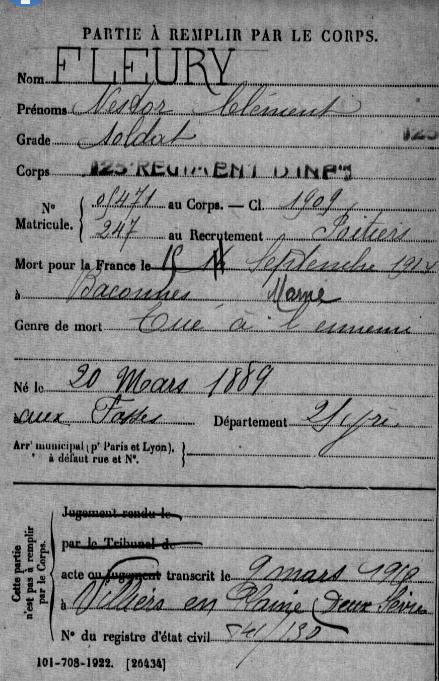 PARTIE À REMPLIR PAR LE CORPS.
Nom FLEURY
Prénoms Nestor Clément
Grade Soldat 125
Corps 125 RÉGIMENT D'INF
N° Matricule. 05471 au Corps. — Cl. 1909
247 au Recrutement Poitiers
Mort pour la France le 15 Septembre 1914
à Baconnes Marne
Genre de mort Tué à l'ennemi
Né le 20 Mars 1889
aux Fosses Département 2 Sèvres
Arrt municipal (pr Paris et Lyon),
à défaut rue et N°.
Cette partie n'est pas à remplir par le Corps.
Jugement rendu le
par le Tribunal de
acte ou jugement transcrit le 9 mars 19
à Villiers en Plaine Deux Sèvres
N° du registre d'état civil
101-708-1922. [26434]